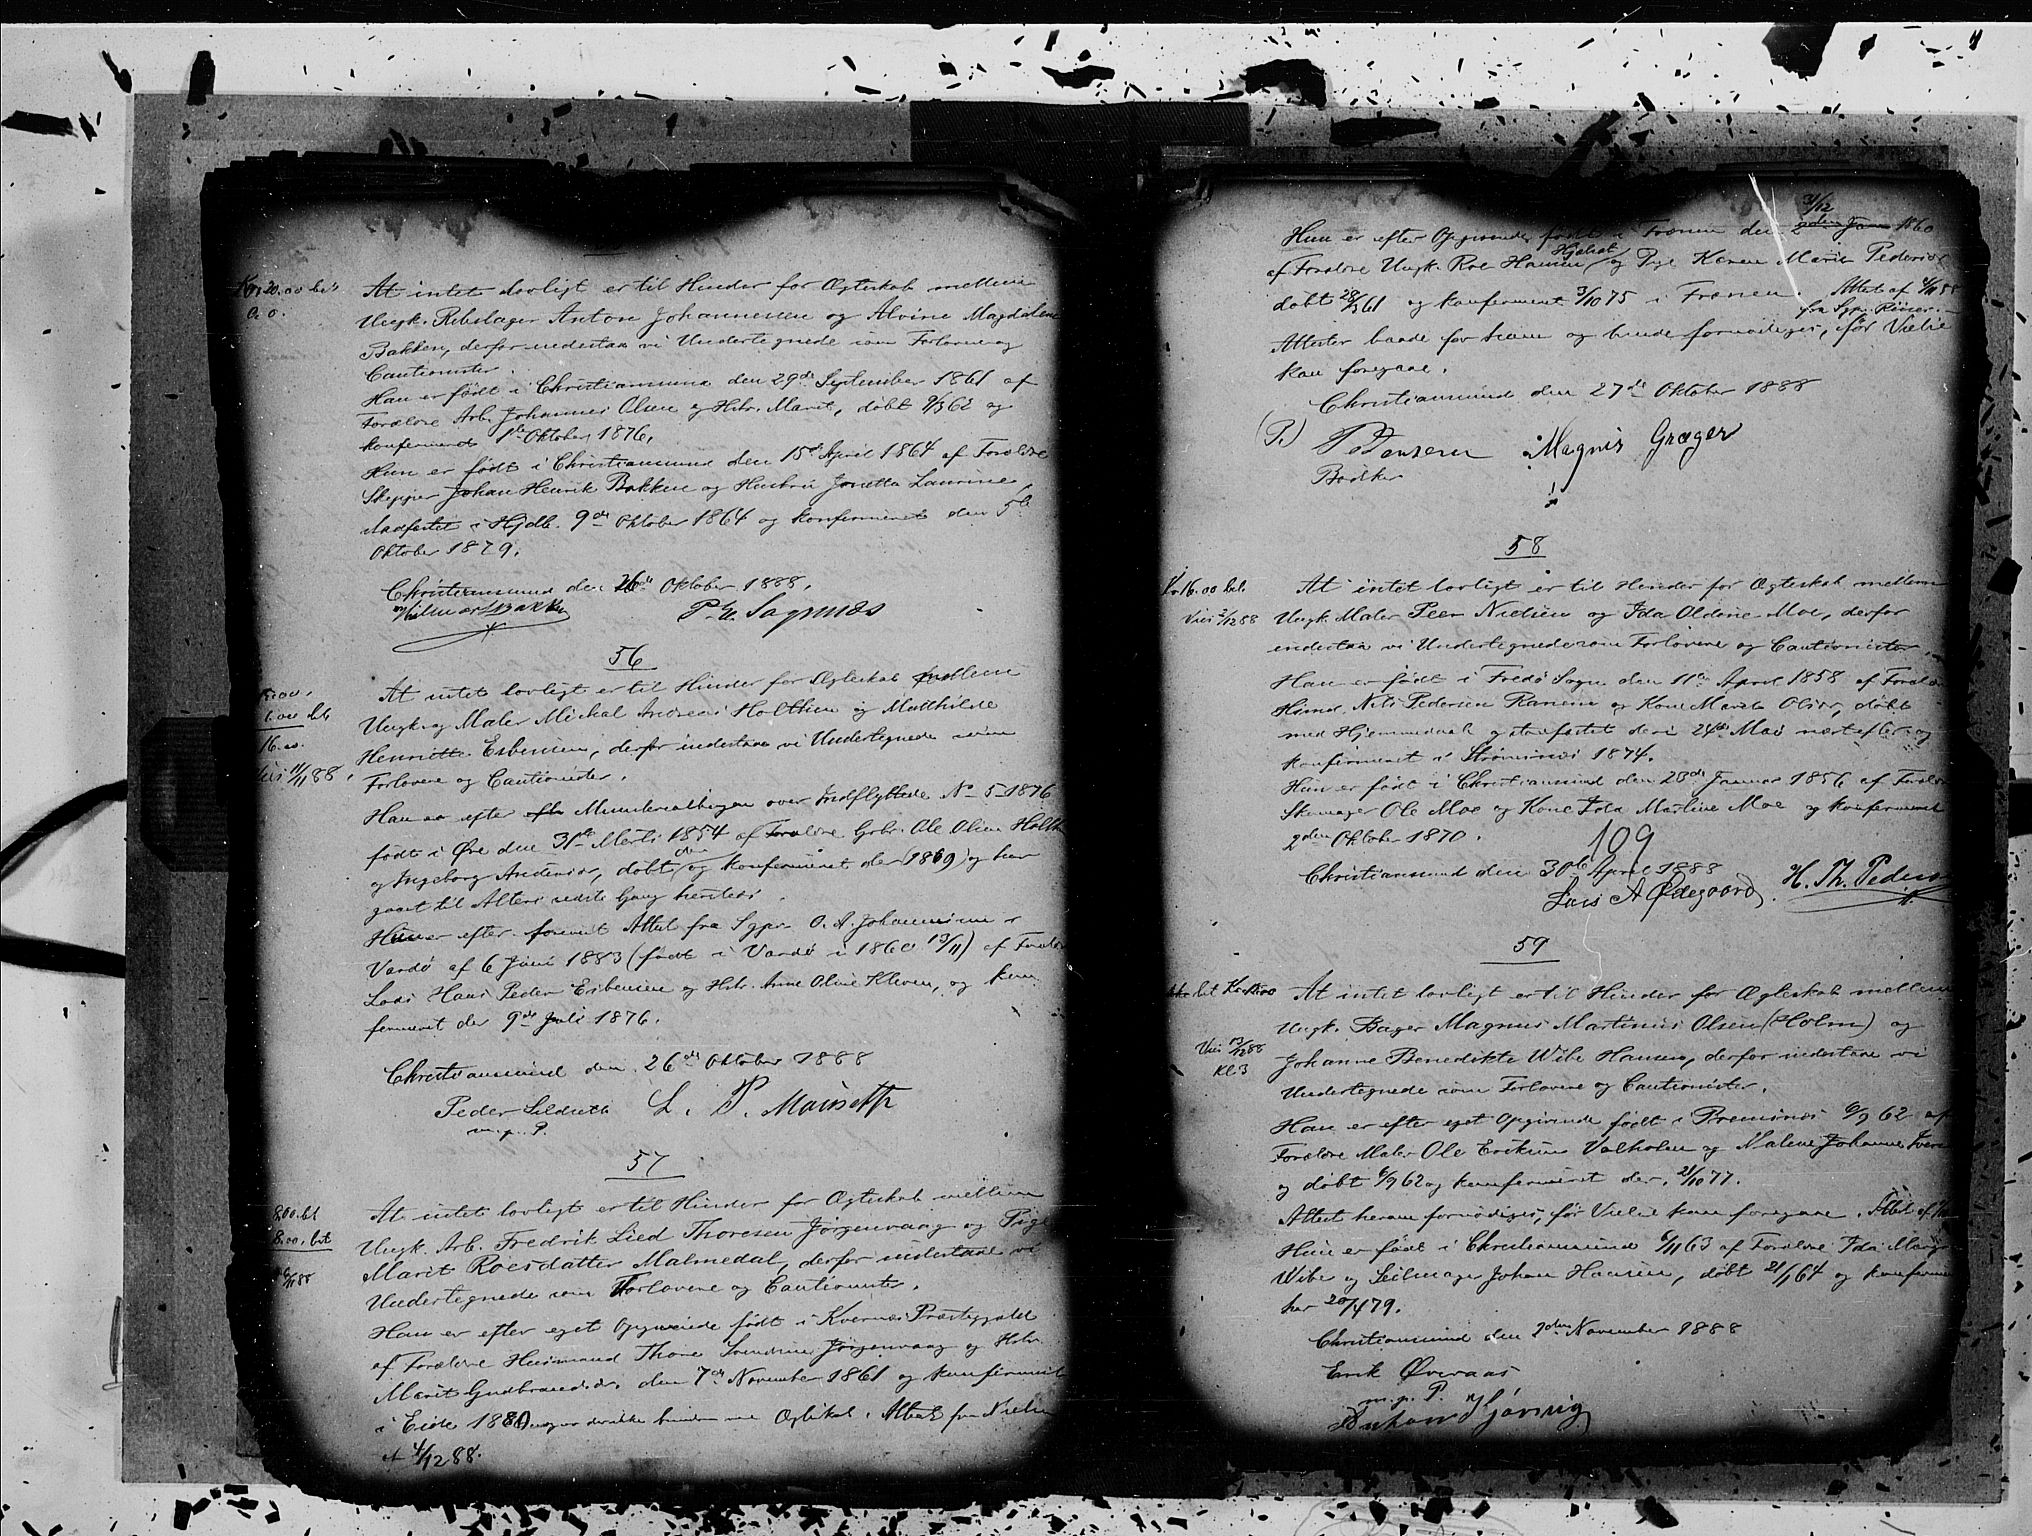 Kr. 20.00 bet.
At intet lovligt er til Hinder for Ægteskab mellem
Ungk. Rebslager Anton Johannesen og Alvine Magdalene
Bakken, derfor indestaa vi Undertegnede som Forlovere og
Cautionister.
Han er født i Christianssund den 29de September 1861 af
Forældre Arb. Johannes Olsen og Hstr. Marit, døbt 9/3 62 og
konfirmeret 1ste Oktober 1876.
Hun er født i Christianssund den 15de April 1864 af Forældre
Skipper Johan Henrik Bakken og Hustru Jonetta Laurine,
stadfæstet i Hjdb. 9de Oktober 1864 og konfirmeret den 5te
Oktober 1879.
Christianssund den 26de Oktober 1888.
Hilmar Bakken P. E. Sagmæs
56
bet.
16.00
Viet 11/11 88.
At intet lovligt er til Hinder for Ægteskab mellem
Ungk. og Maler Mickal Andreas Holthen og Matthilde
Henriette Esbensen, derfor indestaa vi Undertegnede som
Forlovere og Cautionister.
Han er efter Ministerialbogen over Indflyttede No 5 1876
født i Øre den 31te Marts 1854 af Forældre Gbr. Ole Olsen Holth
og Ingeborg Andersdr, døbt den og konfirmeret den (1869) og har
gaaet til Alters sidste Gang hersteds.
Hun er efter foreviist Attest fra Sgpr. O. A. Johannessen i
Vardø af 6 Juni 1883 (født i Vardø i 1860 13/11) af Forældre
Lods Hans Peder Esbensen og Hstr. Anne Oline Kleven, og kon
firmeret den 9de Juli 1876.
Christianssund den 26de Oktober 1888
Peder Sildseth L. P. Mauseth
m. p. P.
57
8.00 bet
8.00 bet
At intet lovligt er til Hinder for Ægteskab mellem
Ungk. Arb. Fredrik Lied Thoresen Jørgenvaag og Pige
Marit Roesdatter Malmedal, derfor indestaae vi
Undertegnede som Forlovere og Cautionister.
Han er efter eget Opgivende født i Kvernes Præstegjeld
af Forældre Husmand Thore Svendsen Jørgenvaag og Hstr.
Marit Gudbrandsdr. den 7de November 1861 og konfirmeret
i Eide 1880 Ægtskab. Attest fra
af 4/12 88.
31/12
Hun er efter Opgivende født i Frænen den 2den Janr 1860
af Forældre Ungk. Roe Hansen Hjelset og Pige Karen Marie Pedersdr
døbt 28/3 61 og konfirmeret 3/10 75 i Frænen. Attest af 4/11 88
fra Sgpr.
Attester baade for ham og hende fornødiges, før Vielse
kan foregaae.
Christianssund den 27de Oktober 1888
(P.) P Hansen Magnus Græger
Bødker
58
Kr. 16.00 bet.
Viet 2/12 88
At intet lovligt er til Hinder for Ægteskab mellem
Ungk. Maler Peer Nielsen og Ida Oldine Moe, derfor
indestaa vi Undertegnede som Forlovere og Cautionister.
Han er født i Fredø Sogn den 11te April 1858 af Forældre
Husmd. Nils Pedersen Ranem og Kone Marit Olsdr, døbt
med Hjemmedaab og stadfæstet den 24de Mai næstefter og
konfirmeret i Strømsnæs 1874.
Hun er født i Christianssund den 23de Januar 1856 af Forældre
Skomager Ole Moe og Kone Ida Martine Moe og konfirmeret
2den Oktober 1870.
109
Christianssund den 30te April 1888
Lars A Ødegaard. H. Th. Pedersen
59
bet Kr.
Viet 13/12 88
Kl 3
At intet lovligt er til Hinder for Ægteskab mellem
Ungk. Bager Magnus Martinus Olsen (Holm) og
Johanne Benedikte Wibe Hansen, derfor indestaae vi
Undertegnede som Forlovere og Cautionister.
Han er efter eget Opgivende født i Bremsnæs 6/9 62 af
Forældre Maler Ole Eriksen Valholm og Malene Johanne Iver
og døbt 6/9 62 og konfirmeret den 21/10 77.
Attest herom fornødiges, før Vielse kan foregaae. Attest af
Hun er født i Christianssund 6/11 63 af Forældre Ida Margr.
Wibe og Seilmager Johan Hansen, døbt 21/1 64 og konfirme
her 20/4 79.
Christianssund den 2den November 1888
Erik Øveraas
m. p. P.
Hjørring